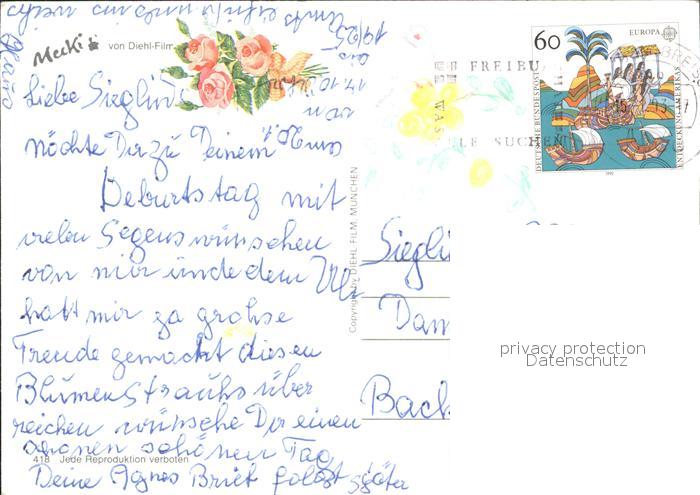 Mecki von Diehl-Film
Liebe Sieglin
möchte Dir zu Deinem
Geburtstag mit
vielen Segenswünschen
von mir unde dem Uli
hatt mir za grohse
Freude gemacht diesen
Blumenstrauhs über
reichen wünsche Dir einen
schönen schönen Tag
418 Jede Reproduktion verboten
Deine Agnes Brief folgt später
Copyright by DIEHL FILM, MÜNCHEN
FREIBU
WAS
LE SUCHEN
60
EUROPA
DEUTSCHE BUNDESPOST
ENTDECKUNG AMERIKAS
1992
Siegli
Dam
Bach
privacy protection
Datenschutz